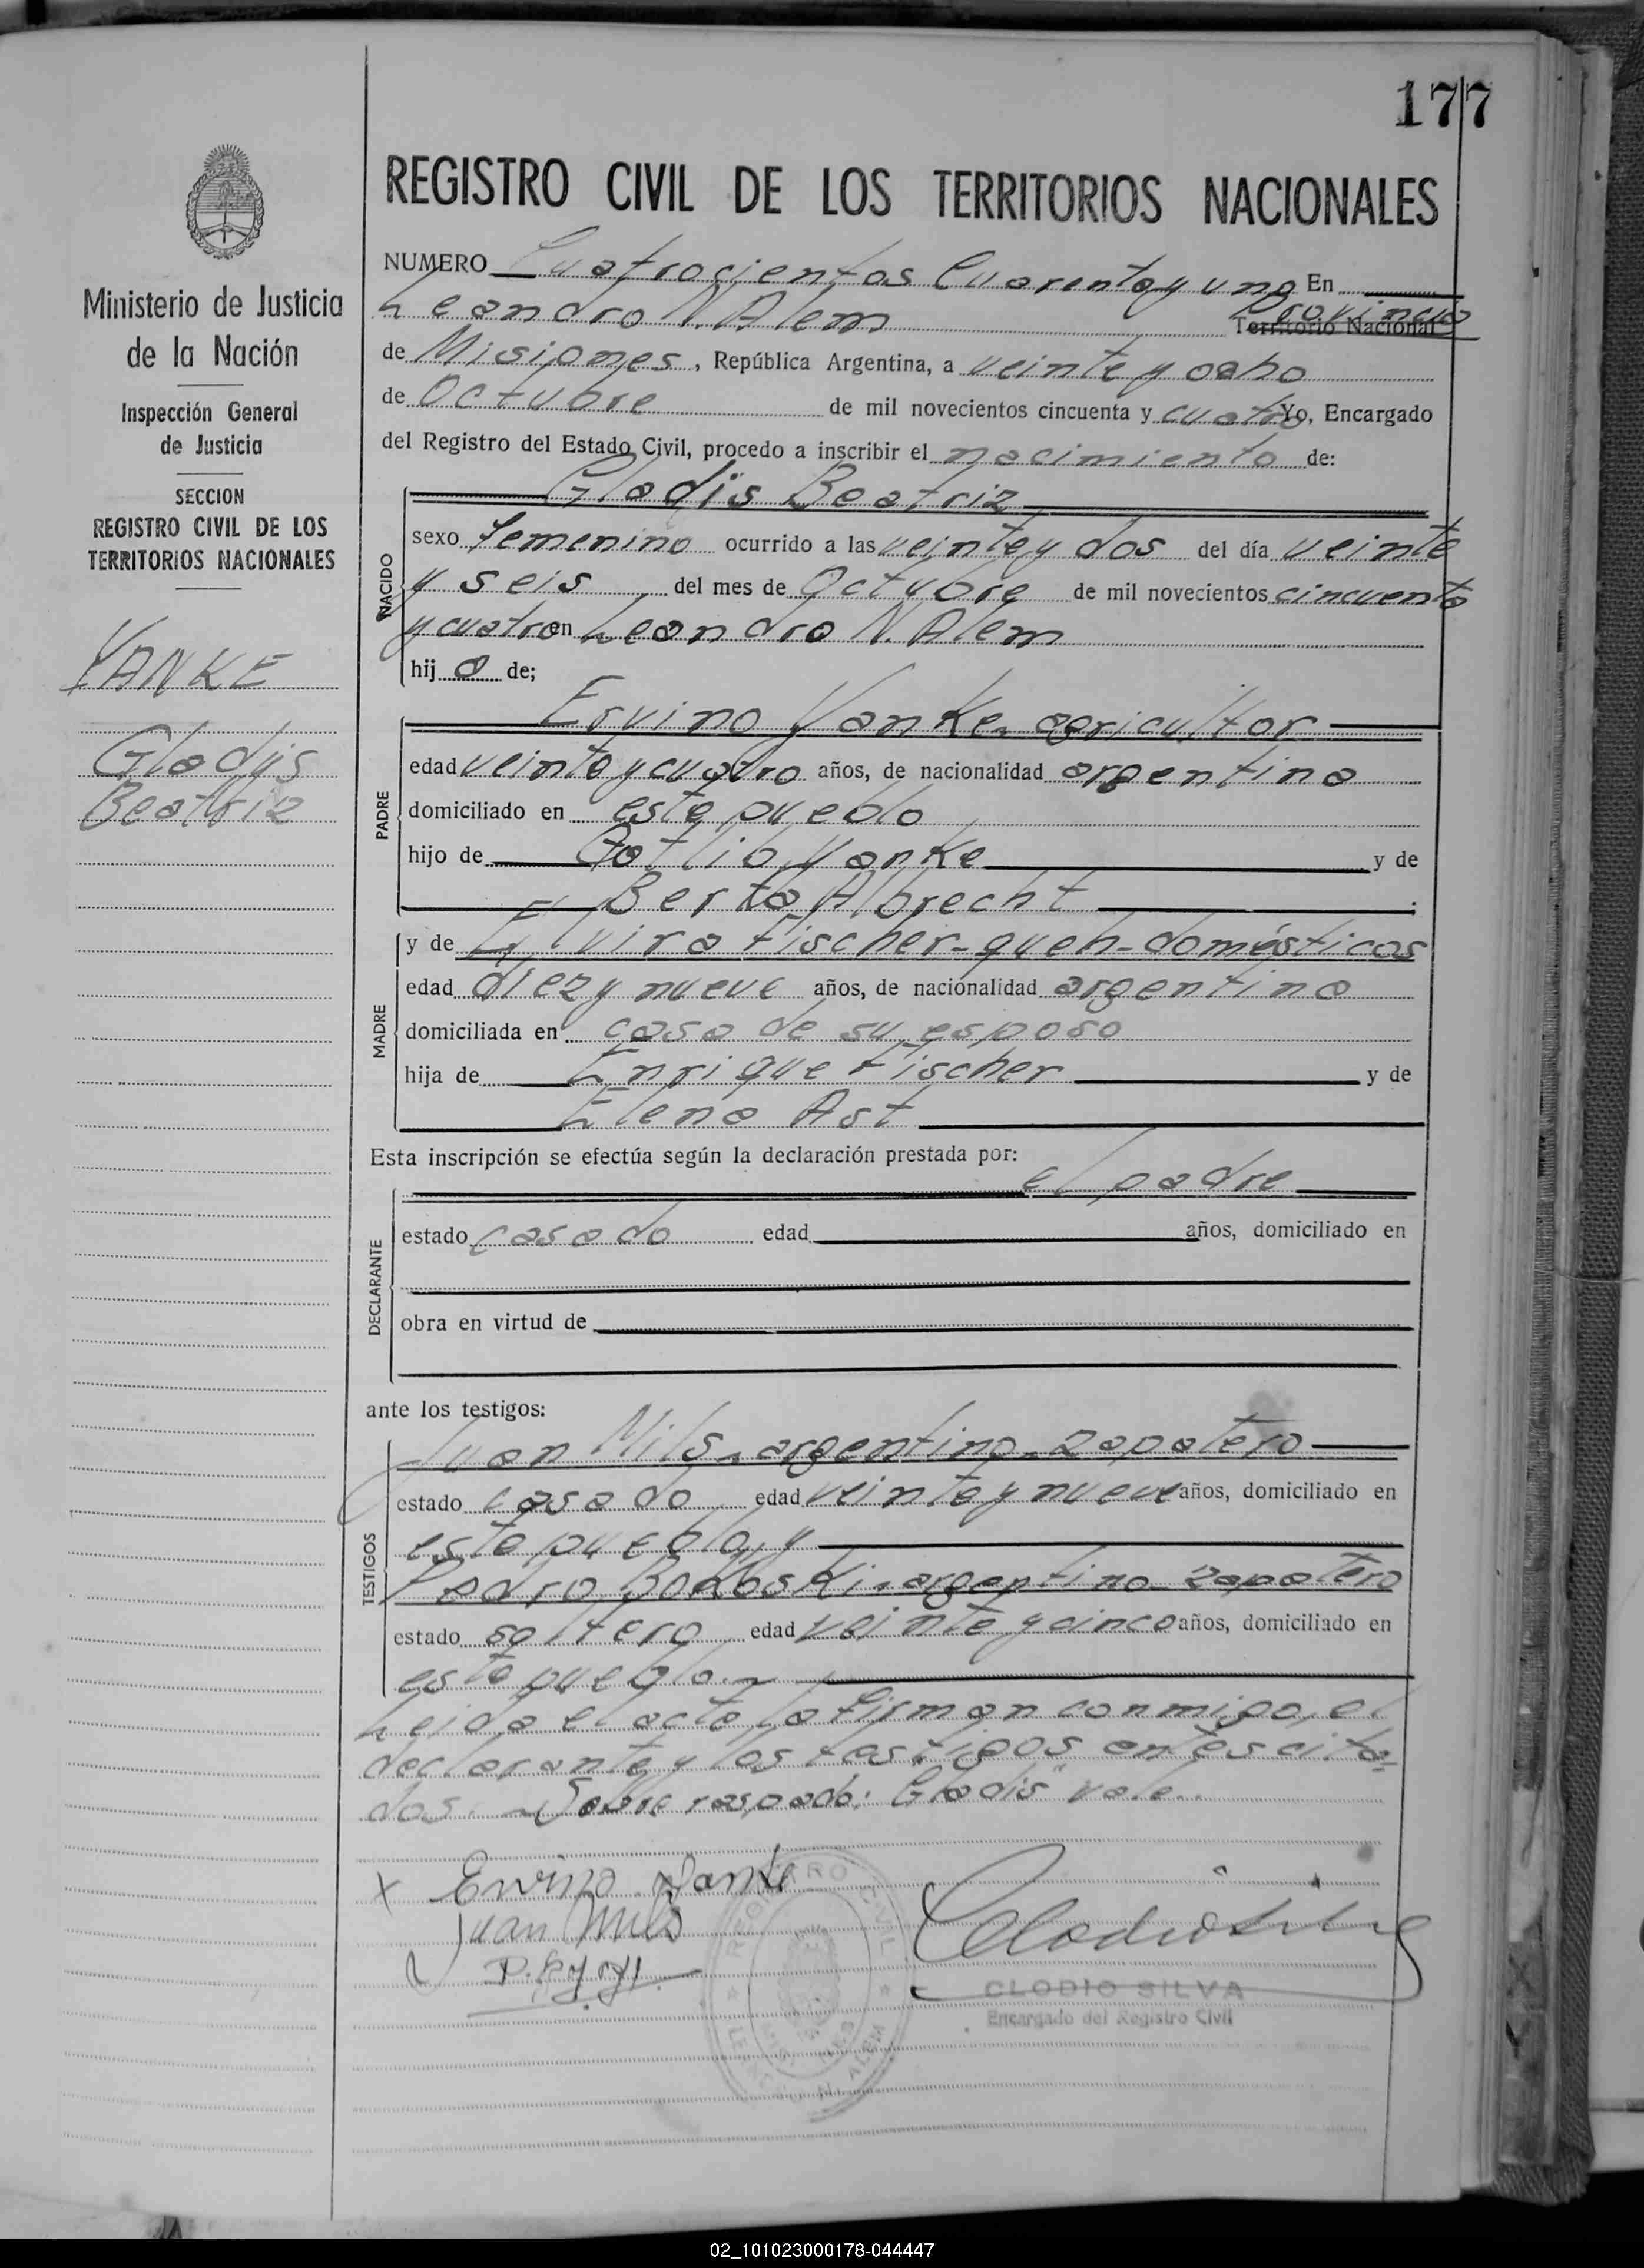 177
REGISTRO CIVIL DE LOS TERRITORIOS NACIONALES
Ministerio de Justicia
de la Nación
Inspección General
de Justicia
SECCION
REGISTRO CIVIL DE LOS
TERRITORIOS NACIONALES
YANKE
Gladys
Beatriz
NUMERO Cuatrocientos Cuarenta y uno En
Leandro N. Alem Provincia Territorio Nacional
de Misiones, República Argentina, a veinte y ocho
de Octubre de mil novecientos cincuenta y cuatro Yo, Encargado
del Registro del Estado Civil, procedo a inscribir el nacimiento de:
Gladis Beatriz
NACIDO
sexo femenino ocurrido a las veinte y dos del día veinte
y seis del mes de Octubre de mil novecientos cincuenta
y cuatro en Leandro N. Alem
hij a de;
PADRE
Ervino Yanke. agricultor
edad veinte y cuatro años, de nacionalidad argentina
domiciliado en este pueblo
hijo de Gotlib Yanke y de
Berta Albrecht
MADRE
y de Elvira Fischer-queh-domésticos
edad diez y nueve años, de nacionalidad argentina
domiciliada en casa de su esposo
hija de Enrique Fischer y de
Elena Ast
Esta inscripción se efectúa según la declaración prestada por:
el padre
DECLARANTE
estado casado edad años, domiciliado en
obra en virtud de
ante los testigos:
TESTIGOS
Juan Mils. argentino. zapatero
estado casado edad veinte y nueve años, domiciliado en
este pueblo, y
Pedro argentino. zapatero
estado soltero edad veinte y cinco años, domiciliado en
este pueblo.
Leida el acta la firman conmigo, el
declarante y los testigos antes cita=
dos. Sobre raspado: "Gladis" vale.
x Ervino Yanke
Juan Mils
CLODIO SILVA
Encargado del Registro Civil
REGISTRO CIVIL
LEANDRO N. ALEM
MISIONES
02_101023000178-044447